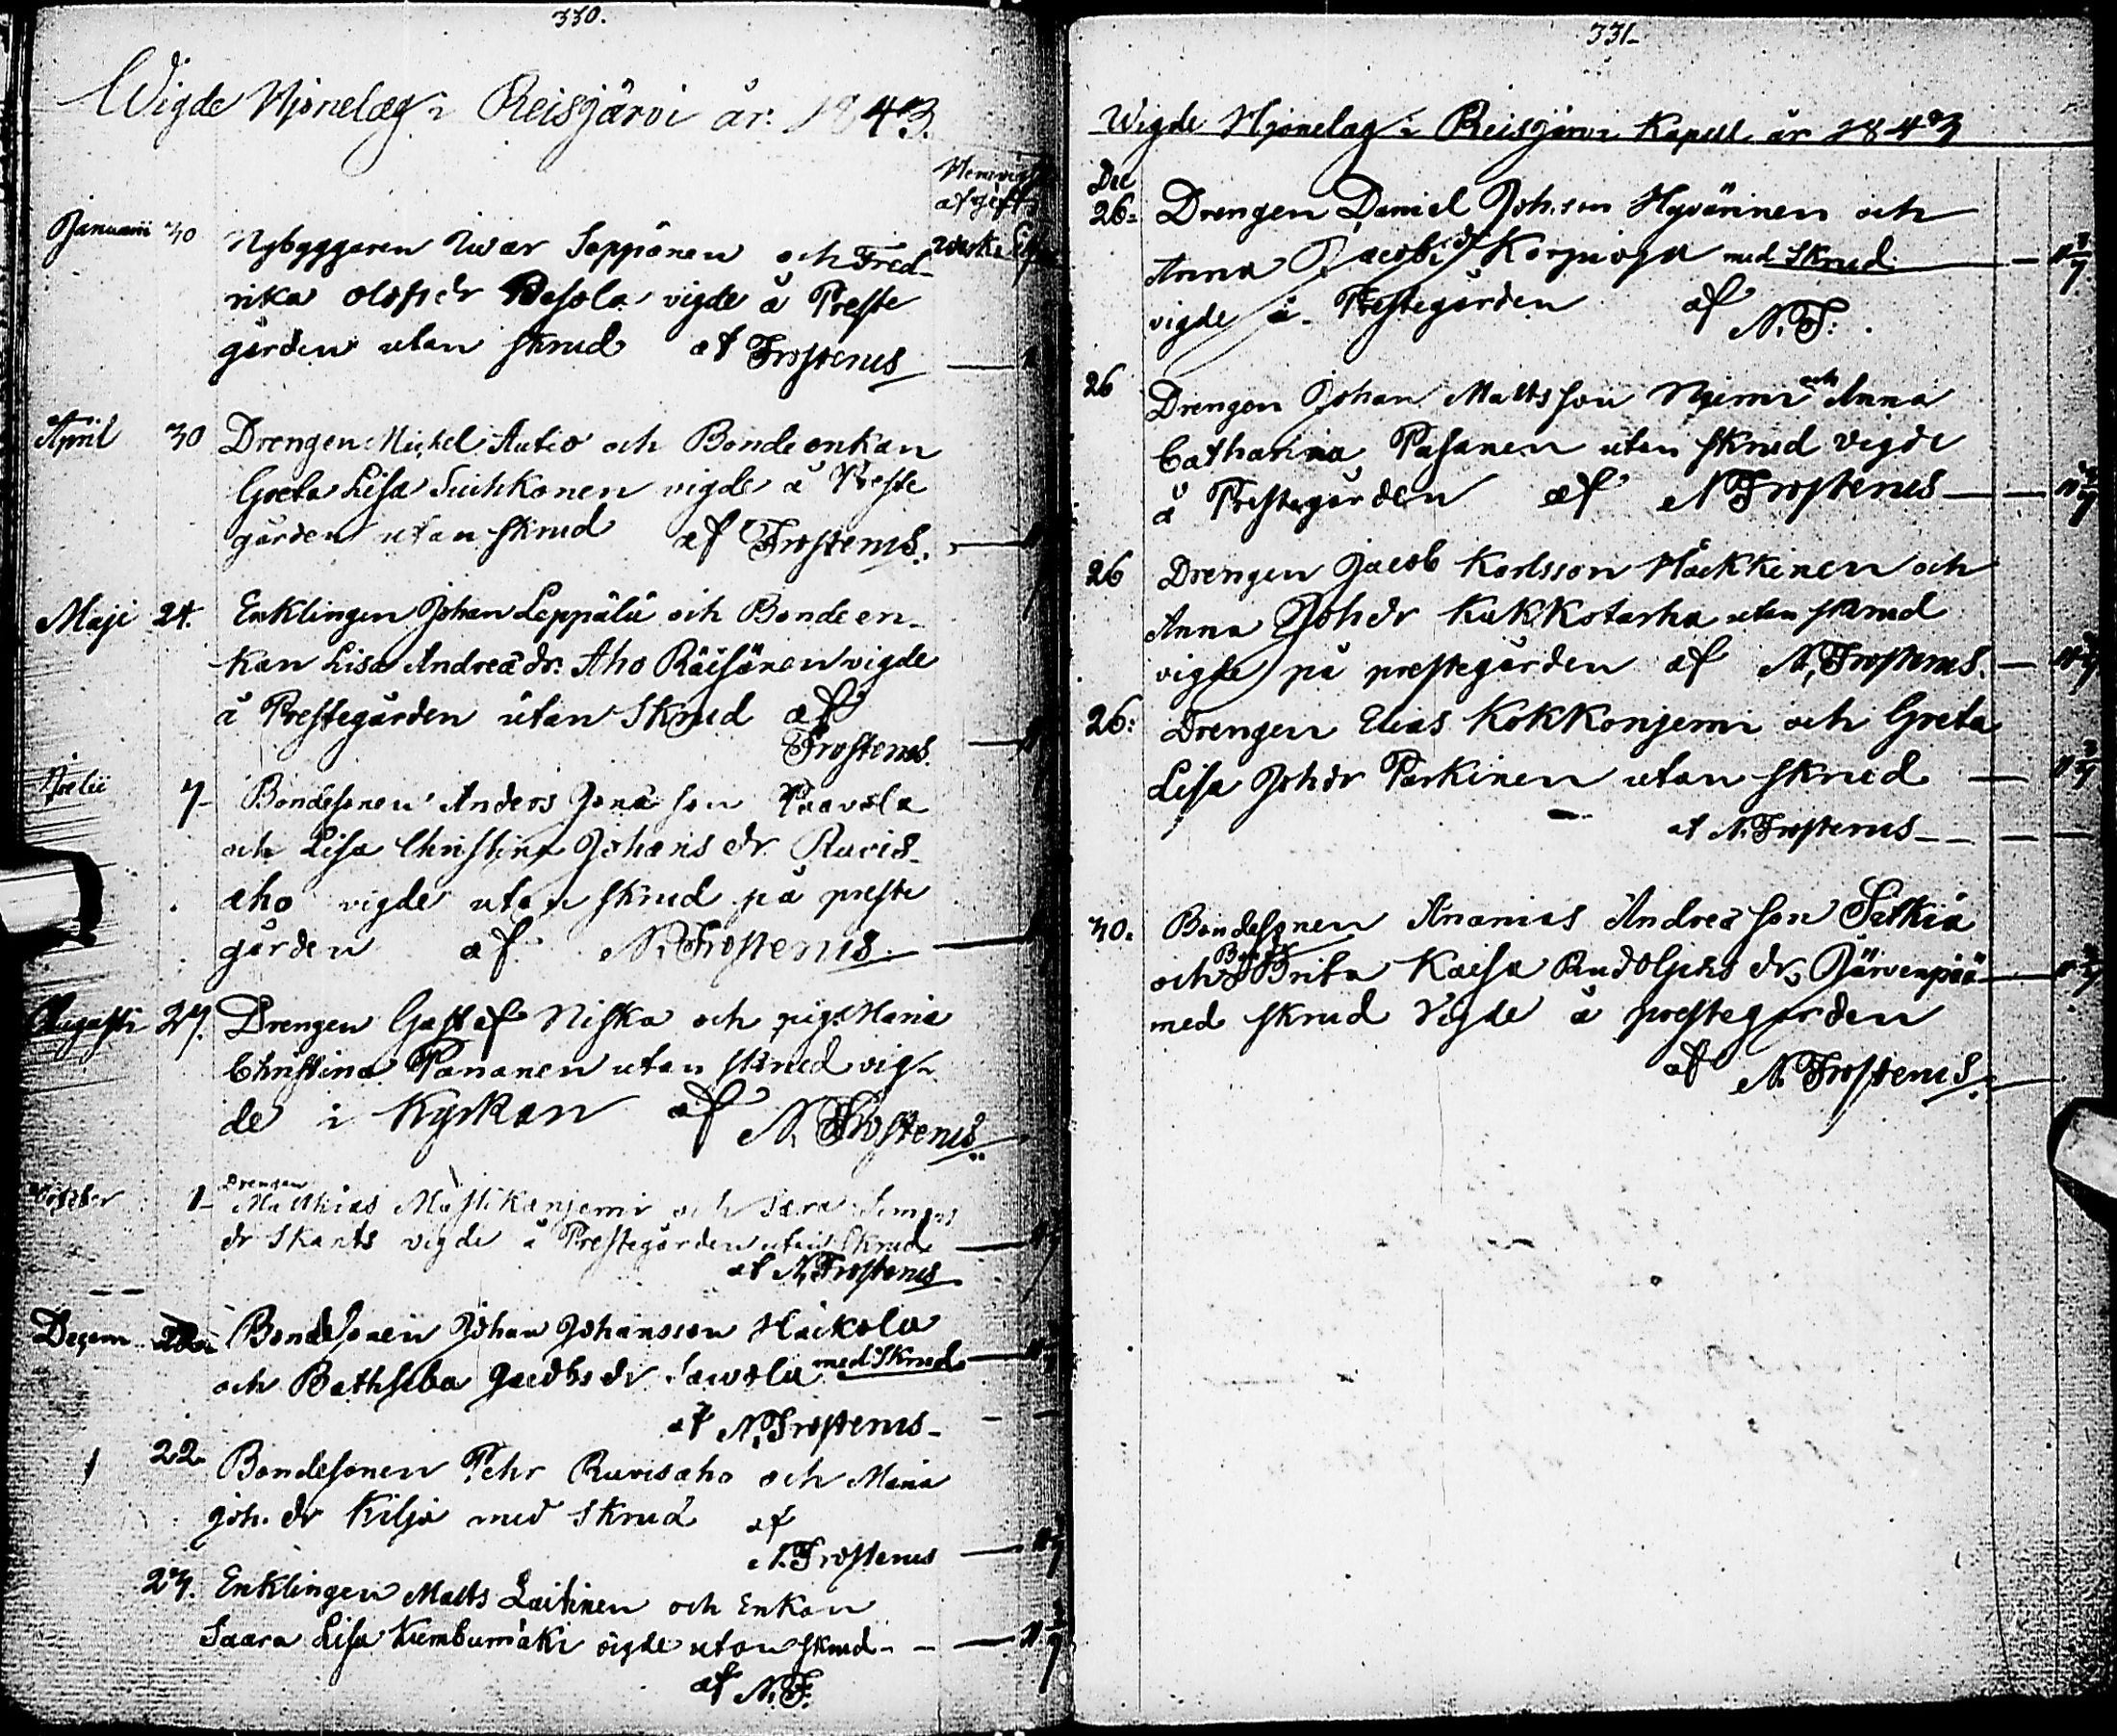 330.
Wigde Hjonelag i Reisjärvi år: 1843.
Januarii 30 Nybyggaren Iwar Seppänen och Fred-
rika Olofsdr Pasola vigde å Preste
gården utan skrud af Frosterus
April 30 Drengen Michel Autio och Bondeenkan
Greta Lisa Suihkonen vigde å Preste
gården utan skrud af Frosterus.
Maji 24. Enklingen Johan Leppälä och Bondeen-
kan Lisa Andreædr. Aho Räisänen vigde
å Prestegården utan Skrud af
Frosterus.
7- Bondesonen Anders Jonæ son Paavola
och Lisa Christina Johans dr. Ruuis-
aho vigde utan skrud på preste
gården af N. Frosterus.
Augusti 27. Drengen Gustaf Niska och pig. Maria
Christina Pananen utan skrud vig-
de i Kyrkan af N. Frosterus
October 1- Drengen Matthias Mustikanjemi och Sara Simons
dr Skants vigde å Prestegården utan Skrud
af N. Frosterus
Decem Bondesonen Johan Johansson Häikolu
och Bathseba Jacobs dr Sawolu med Skrud
af N. Frosterus-
22 Bondesonen Pehr Ruuisaho och Maria
Joh. dr Kiljä med Skrud af
N. Frosterus
27. Enklingen Matts Laitinen och Enkan
Saara Lisa Kumbumäki vigde utan skrud--
af N. F.
331-
Wigde Hjonelag i Reisjärvi Kapell år 1843
Dec
26- Drengen Daniel Joh.son Hyvärinen och
Anna Jacobi dr Korpioja med Skrud
vigde å Prestegården af N. F.
26 Drengen Johan Mattsson Njemi och Anna
Catharina Pasanen utan skrud vigde
å Prestegården af N Frosterus
26 Drengen Jacob Karlsson Häkkinen och
Anna Johdr Kukkotarha utan skrud
vigde på prestegården af N. Frosterus.
26: Drengen Elias Kokkonjemi och Greta
Lisa Johdr Parkinen utan skrud
af N. Frosterus--
30. Bondesonen Ananias Andreæ son Saikia
och Brita Kaisa Rudolphs dr Järvenpää
med skrud Vigde å prestegården
af N. Frosterus.